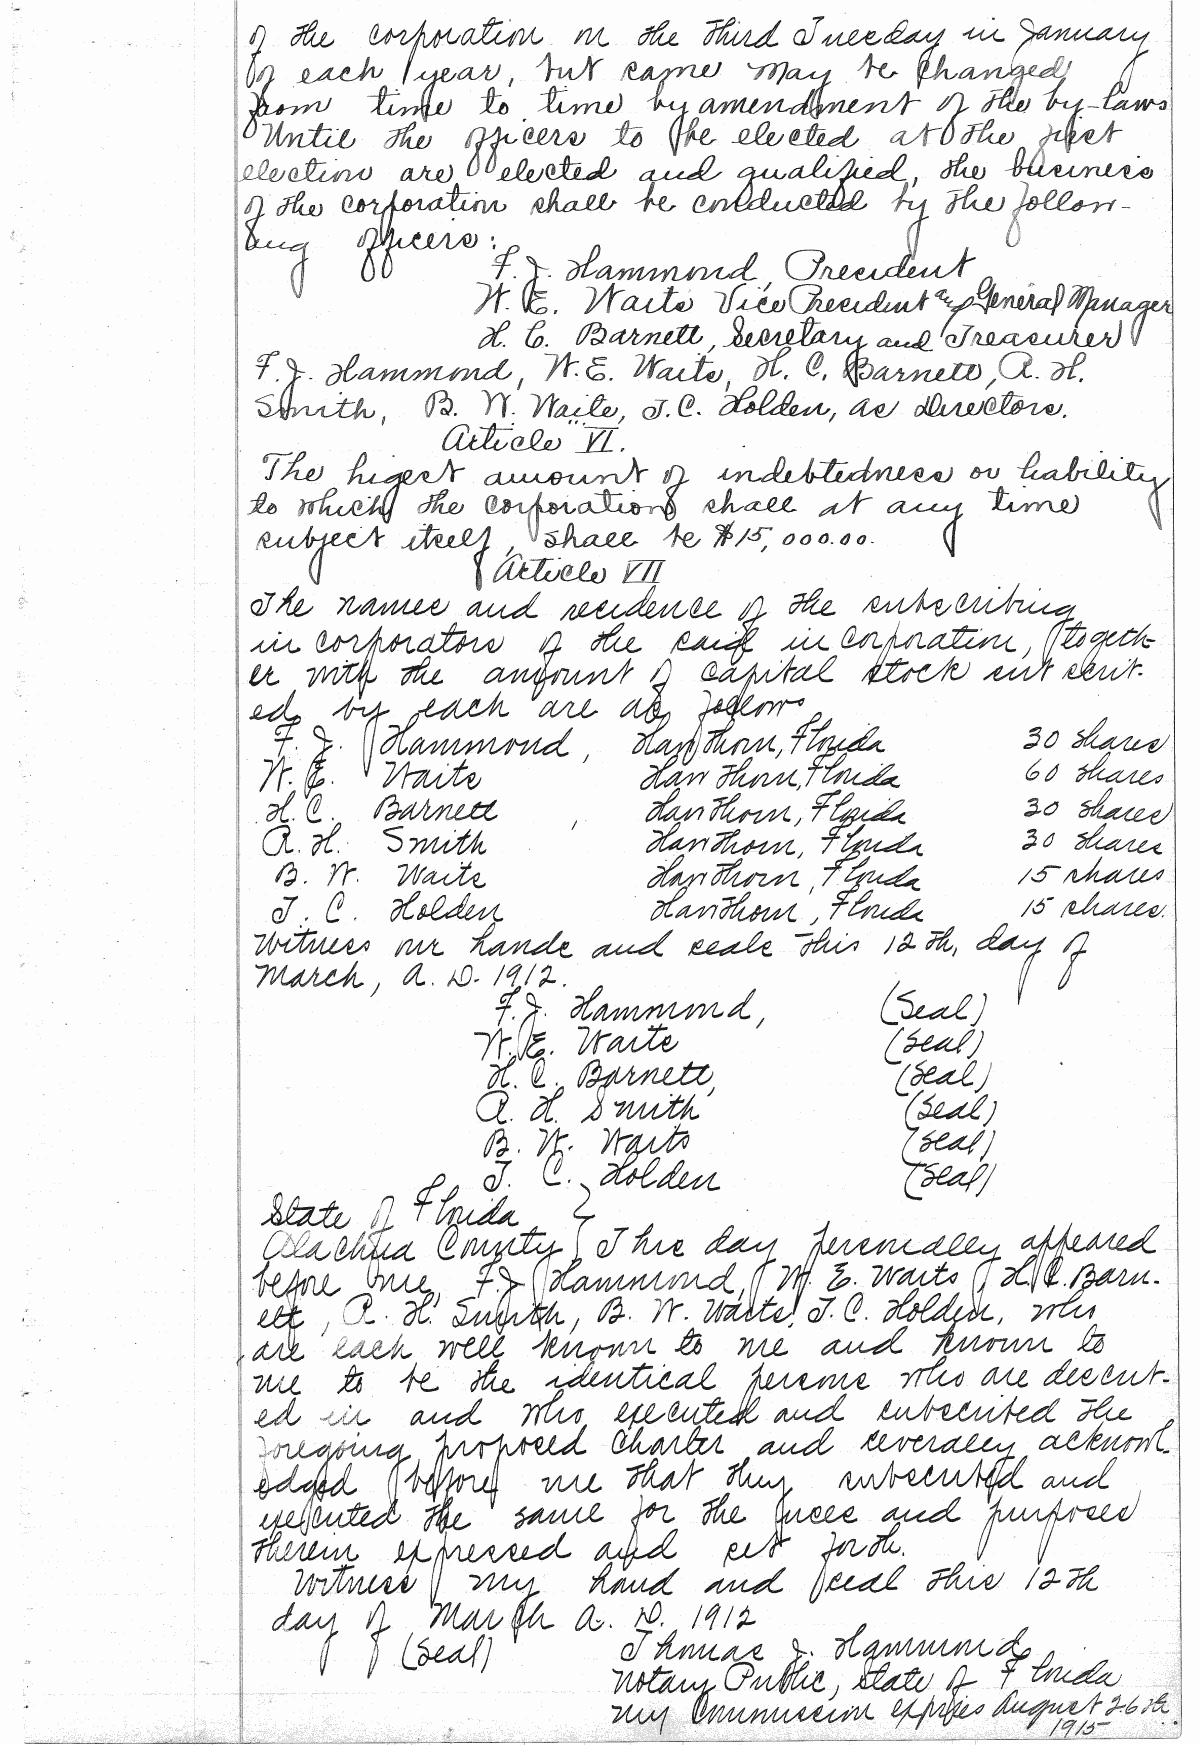 of the corporation on the third Tuesday in January
of each year, but same may be changed
from time to time by amendment of the by-laws
Until the officers to be elected at the first
election are elected and qualified, the business
of the corporation shall be conducted by the follow-
ing officers:
F. J. Hammond, President
W. E. Waits Vice President and General Manager
H. C. Barnett, Secretary and Treasurer
F. J. Hammond, W. E. Waits, H. C. Barnett, A. H.
Smith, B. W. Waits, J. C. Holden, as Directors.
Article VI.
The higest amount of indebtedness or liability
to which the corporation shall at any time
subject itself, shall be $15,000.00.
Article VII
The names and residence of the subscribing
incorporators of the said incorporation, togeth-
er with the amount of capital stock subscrib-
ed by each are as follows
F. J. Hammond, Hawthorn, Florida 30 shares
W. E. Waits Hawthorn, Florida 60 shares
H. C. Barnett, Hawthorn, Florida 30 shares
A. H. Smith Hawthorn, Florida 30 shares
B. W. Waits Hawthorn, Florida 15 shares
J. C. Holden Hawthorn, Florida 15 shares.
Witness our hands and seals this 12th, day of
March, A. D. 1912.
F. J. Hammond, (Seal)
W. E. Waits (Seal)
H. C. Barnett, (Seal)
A. H. Smith (Seal)
B. W. Waits (Seal)
J. C. Holden (Seal)
State of Florida }
Alachua County } This day personally appeared
before me, F. J. Hammond, W. E. Waits, H. C. Barn-
ett, A. H. Smith, B. W. Waits, J. C. Holden, who
are each well known to me and known to
me to be the identical persons who are describ-
ed in and who executed and subscribed the
foregoing proposed Charter and severally acknowl-
edged before me that they subscribed and
executed the same for the uses and purposes
therein expressed and set forth.
Witness my hand and seal this 12th
day of March A. D. 1912
(Seal) Thomas J. Hammond
Notary Public, State of Florida
My Commission expires August 26th
1915